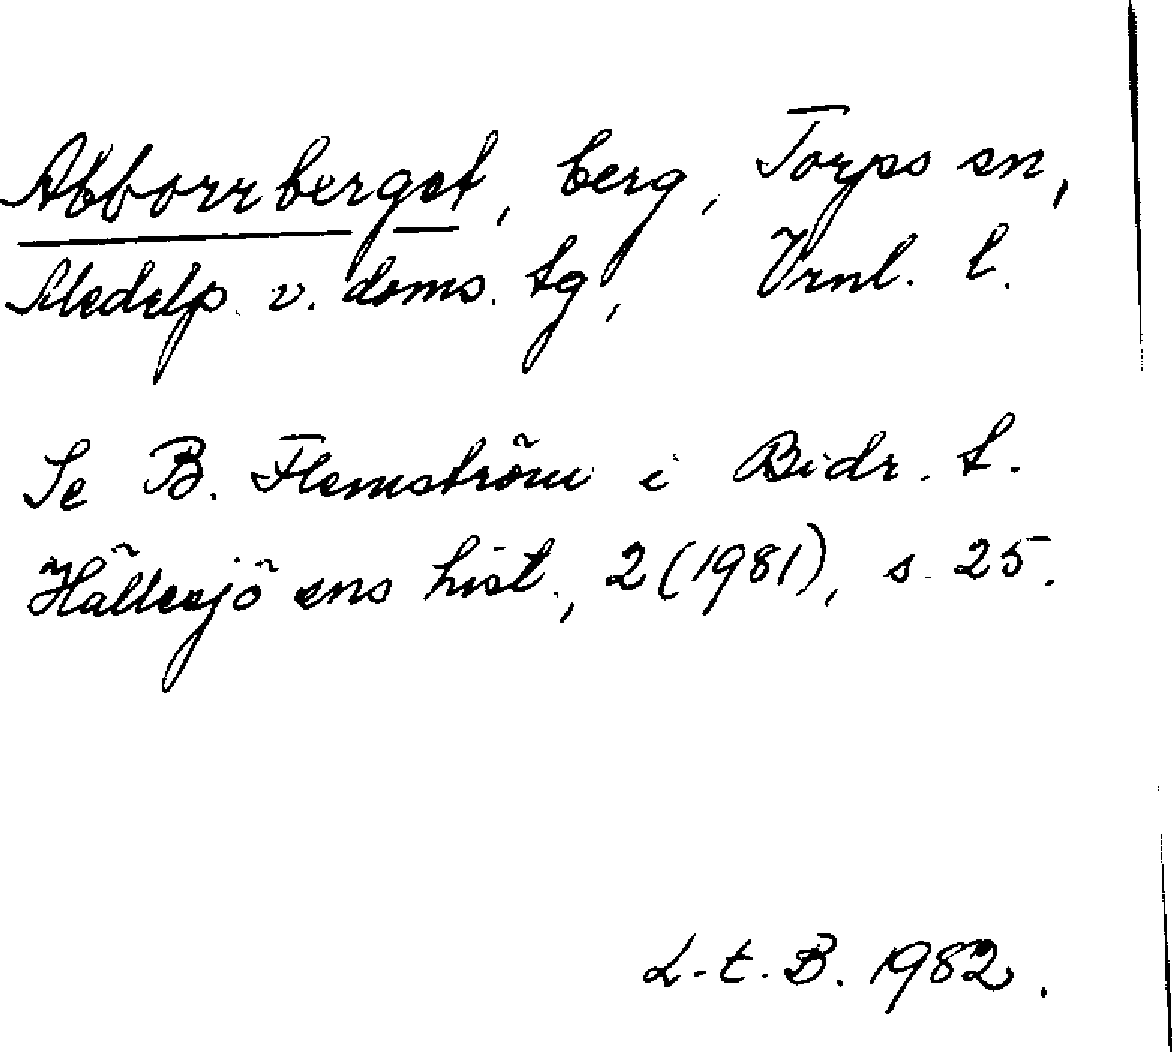 Abborrberget, berg, Torps sn,
Medelp. v. doms. tg, Vrnl. l.
Se B. Flemström i Bidr. t.
Hällesjö sns hist., 2 (1981), s. 25.
L-t. B. 1982.